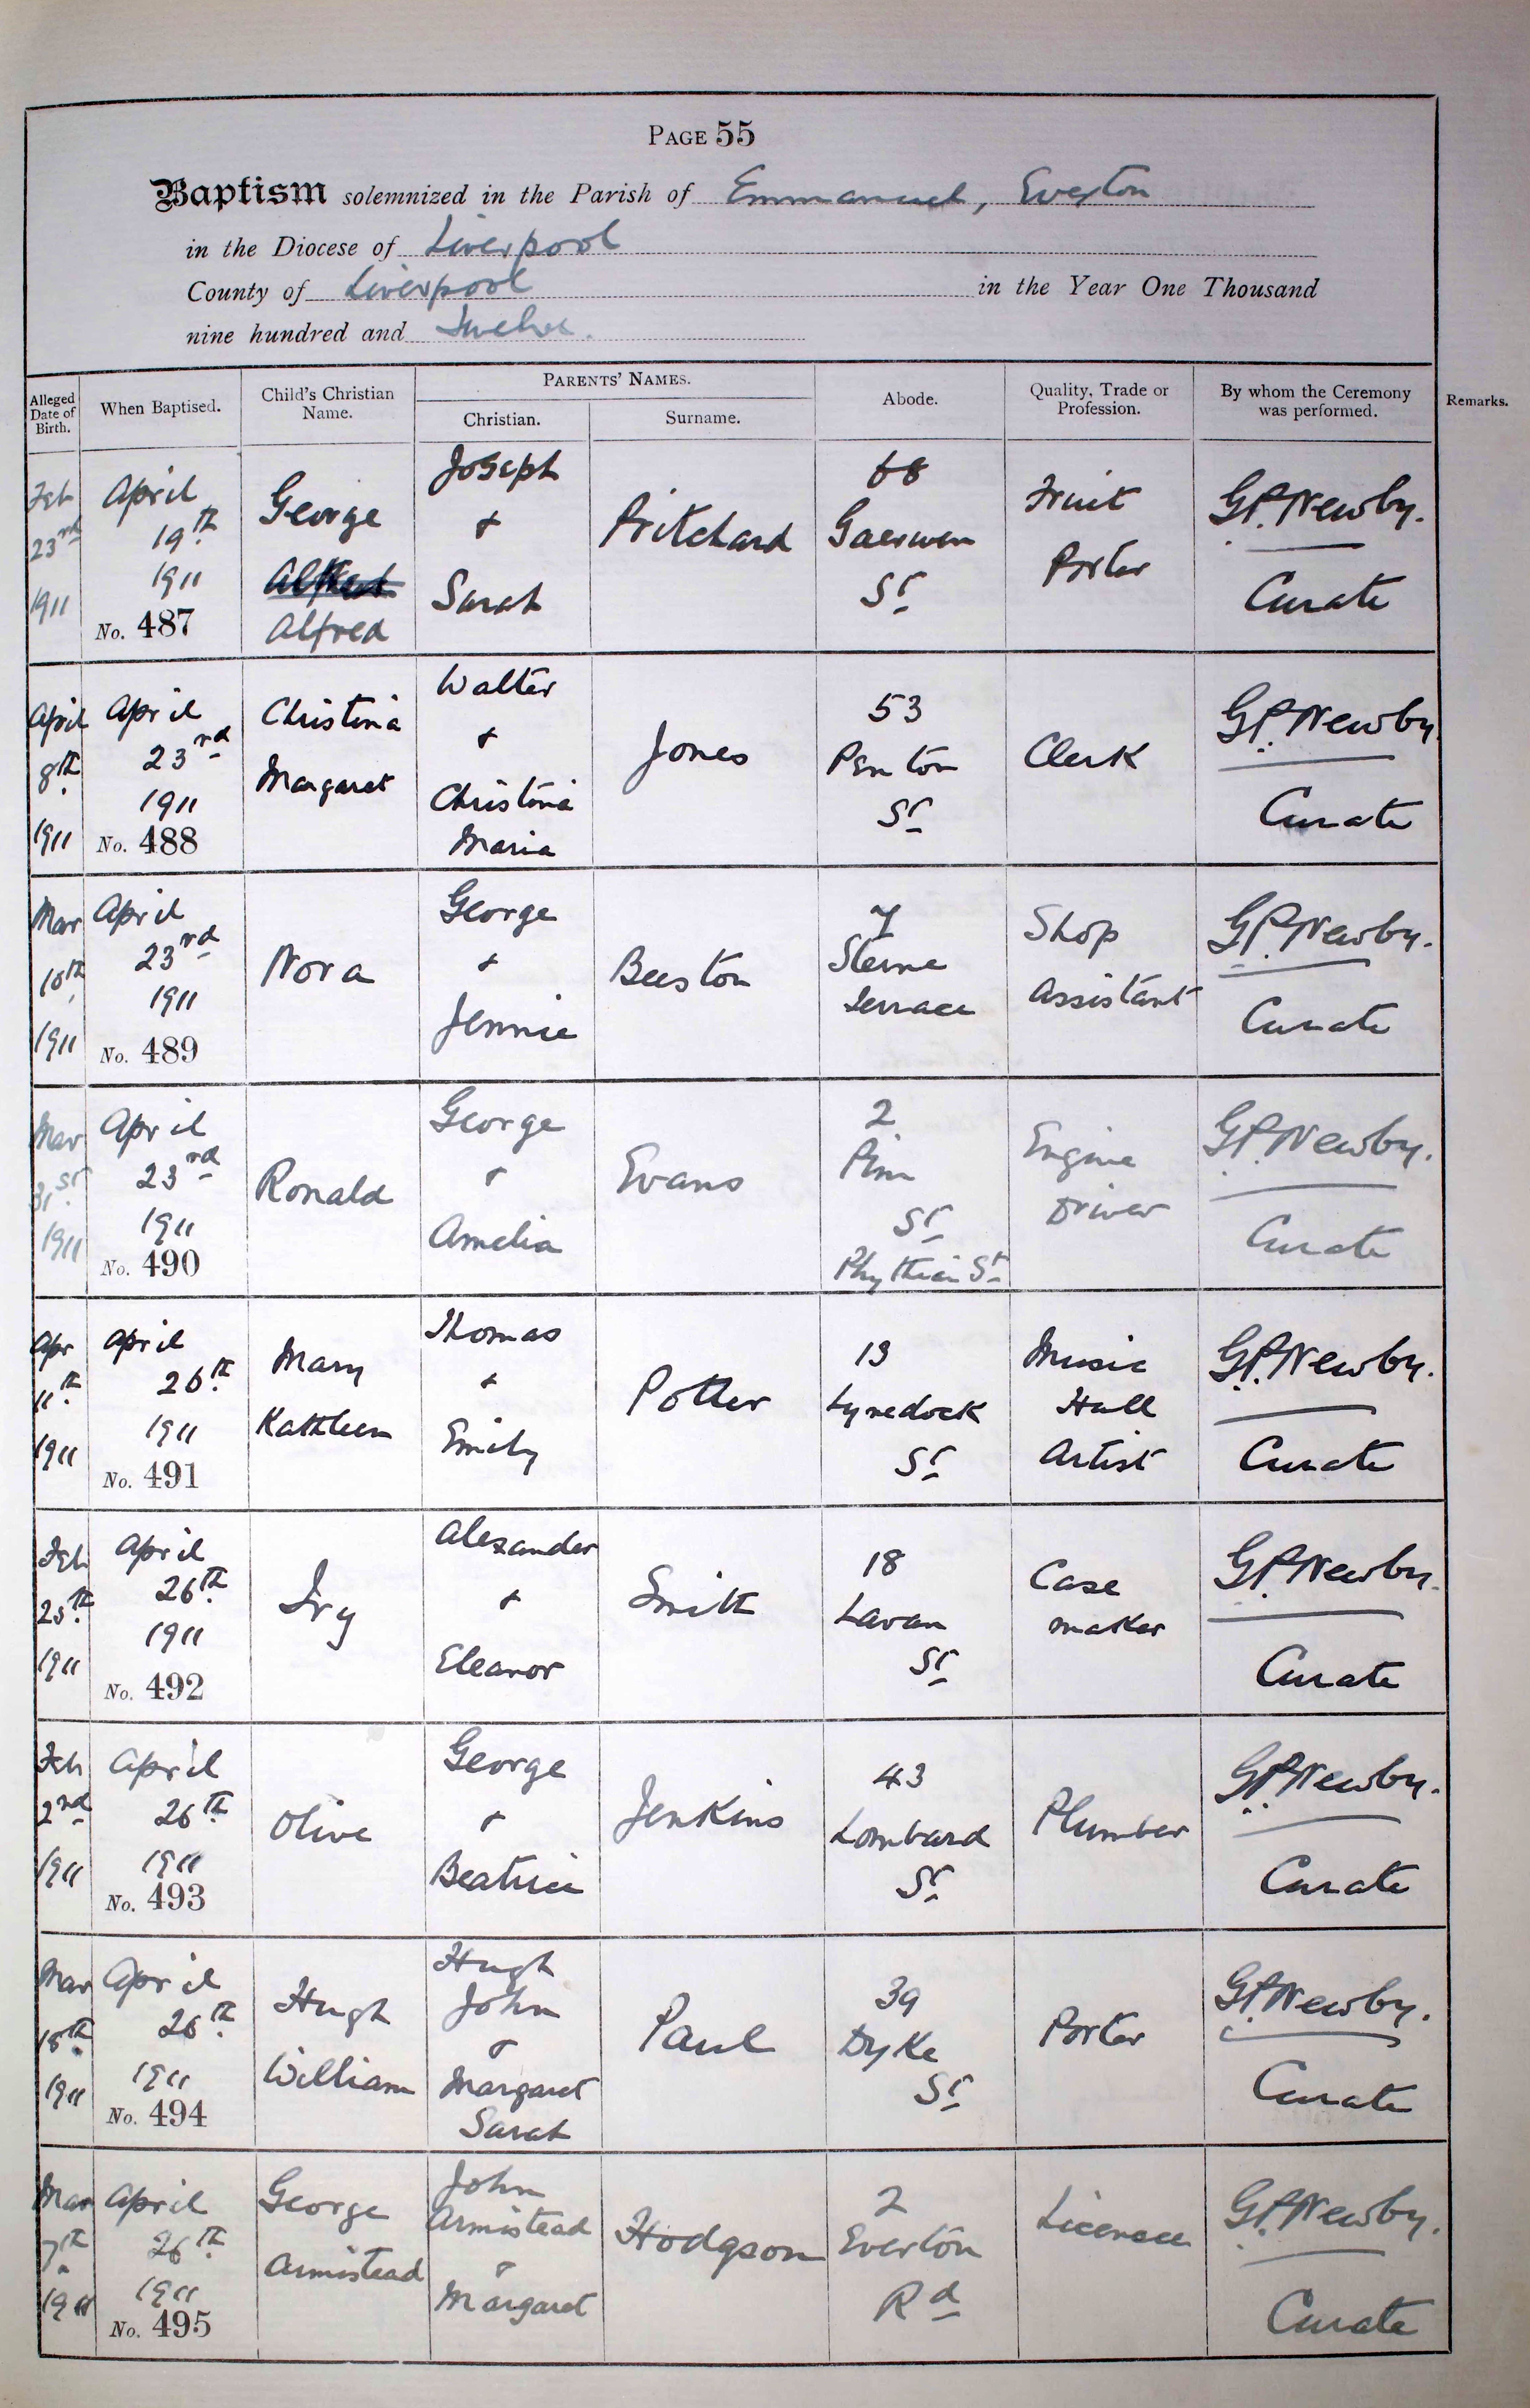 PAGE 55
Baptism solemnized in the Parish of Emmanuel, Everton
in the Diocese of Liverpool
County of Liverpool in the Year One Thousand
nine hundred and Twelve.
Alleged Date of Birth.
When Baptised.
Child's Christian Name.
PARENTS' NAMES.
Christian.
Surname.
Abode.
Quality, Trade or Profession.
By whom the Ceremony was performed.
Remarks.
Feb
23rd
1911
April
19th
1911
No. 487
George
Alfred
Joseph
+
Sarah
Pritchard
68
Gaerwen
St
Fruit
Porter
G.P. Newby.
Curate
April
8th
1911
April
23rd
1911
No. 488
Christina
Margaret
Walter
+
Christina
Maria
Jones
53
Penton
St
Clerk
G.P. Newby.
Curate
Mar
10th
1911
April
23rd
1911
No. 489
Nora
George
+
Jennie
Beeston
7
Sterne
Terrace
Shop
Assistant
G.P. Newby.
Curate
Mar
31st
1911
April
23rd
1911
No. 490
Ronald
George
+
Amelia
Evans
2
Pim
St
Phythian St
Engine
Driver
G.P. Newby.
Curate
Apr
11th
1911
April
26th
1911
No. 491
Mary
Kathleen
Thomas
+
Emily
Potter
13
Lynedock
St
Music
Hall
Artist
G.P. Newby.
Curate
Feb
25th
1911
April
26th
1911
No. 492
Ivy
Alexander
+
Eleanor
Smith
18
Lavan
St
Case
maker
G.P. Newby.
Curate
Feb
2nd
1911
April
26th
1911
No. 493
Olive
George
+
Beatrice
Jenkins
43
Lombard
St
Plumber
G.P. Newby.
Curate
Mar
18th
1911
April
26th
1911
No. 494
Hugh
William
Hugh
John
+
Margaret
Sarah
Paul
39
Dyke
St
Porter
G.P. Newby.
Curate
Mar
7th
1911
April
26th
1911
No. 495
George
Armistead
John
Armistead
+
Margaret
Hodgson
2
Everton
Rd
Licensee
G.P. Newby.
Curate